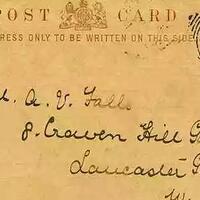 POST CARD
RESS ONLY TO BE WRITTEN ON THIS SIDE
A. V. Falls
8. Craven Hill G
Lancaster G
W